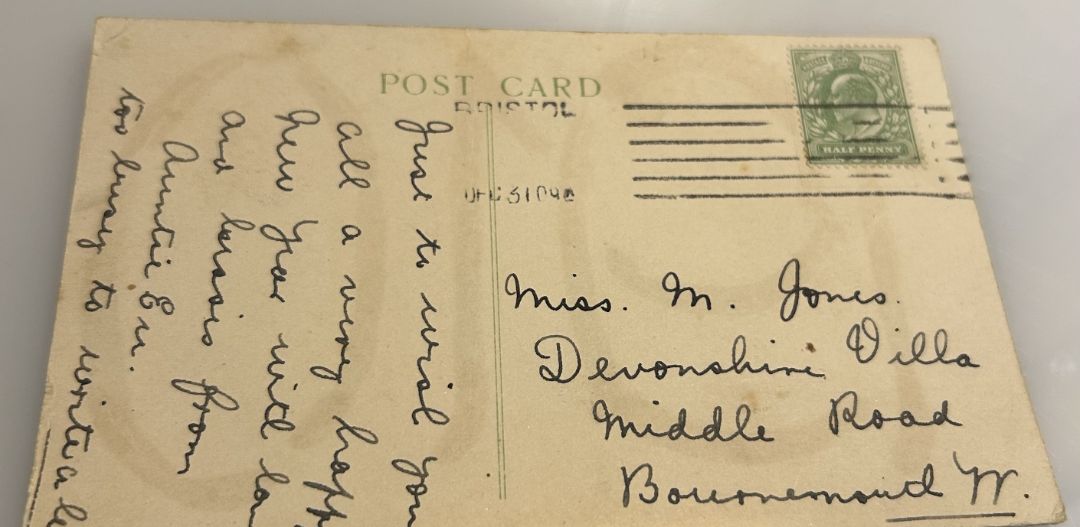 POST CARD
BRISTOL
DEC 31
HALF PENNY
Just to wish you
all a very happ
New Year with lo
and kisses from
Auntie Em.
too busy to write a le
Miss. M. Jones.
Devonshire Villa
Middle Road
Bournemouth W.